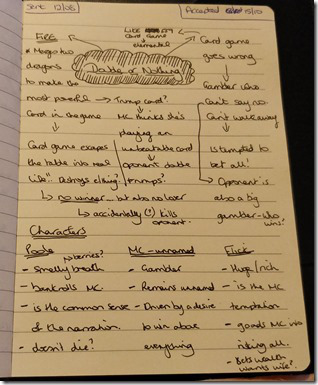 Sent 12/08
Accepted 15/10
LIKE
card game
elemental
Double or Nothing
Fire
* Merge two
dragons
to make the
most powerful → Trump card?
card in the game
Card game escapes
the table into real
life".. Destroys
↳ no winner... but also no loser
↳ accidentally (!) kills
opponent
MC thinks she's
playing an
unbeatable card
oponent double
trumps?
Card game
goes wrong
Gambler who
Can't say no
Can't walk away
Is tempted to
bet all!
Opponent is
also a big
gambler - who
wins?
Characters
- smelly breath
- bankrolls MC.
- is the common sense
of the narration.
- doesn't die?
MC - unnamed
- Gambler
- Remains unnamed
- Driven by a desire
to win above
everything
Flick
- Huge/rich
- is the MC
temptation
- goads MC into
risking all.
- Bets wealth
wants wife?